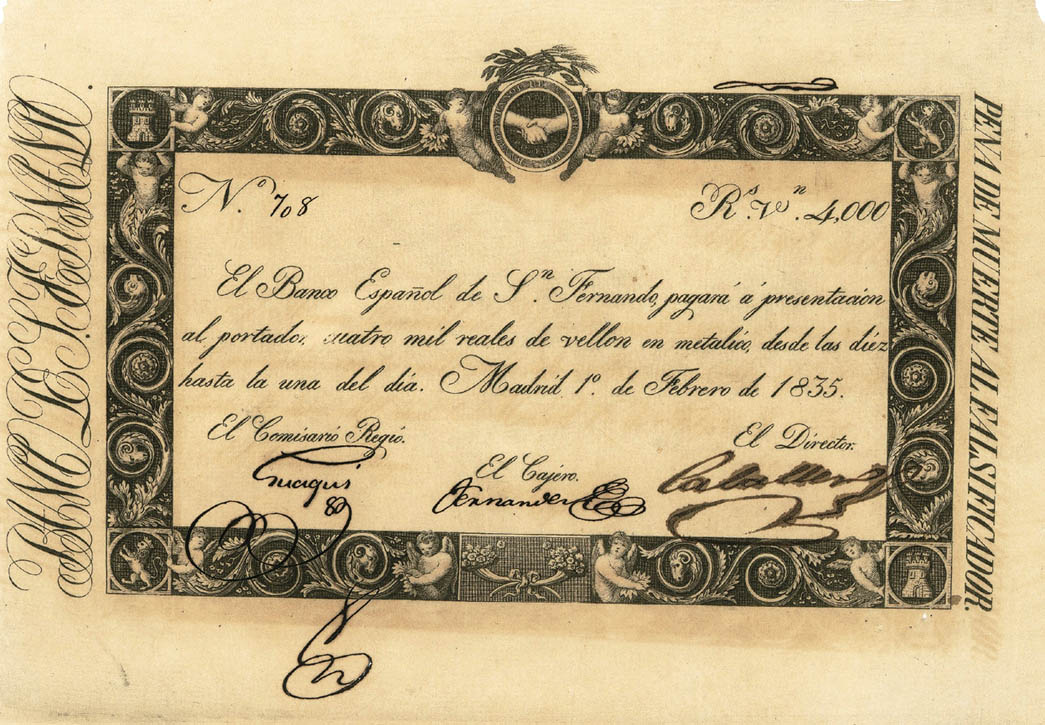 BANCO DE S. FERNANDO
PENA DE MUERTE AL FALSIFICADOR.
N.º 708
R.s V.n 4,000
El Banco Español de S.n Fernando, pagará á presentacion
al portador, cuatro mil reales de vellon en metalico, desde las diez
hasta la una del dia. Madrid 1.º de Febrero de 1835.
El Comisario Regio.
El Cajero.
El Director.
Fernandez
Caballero